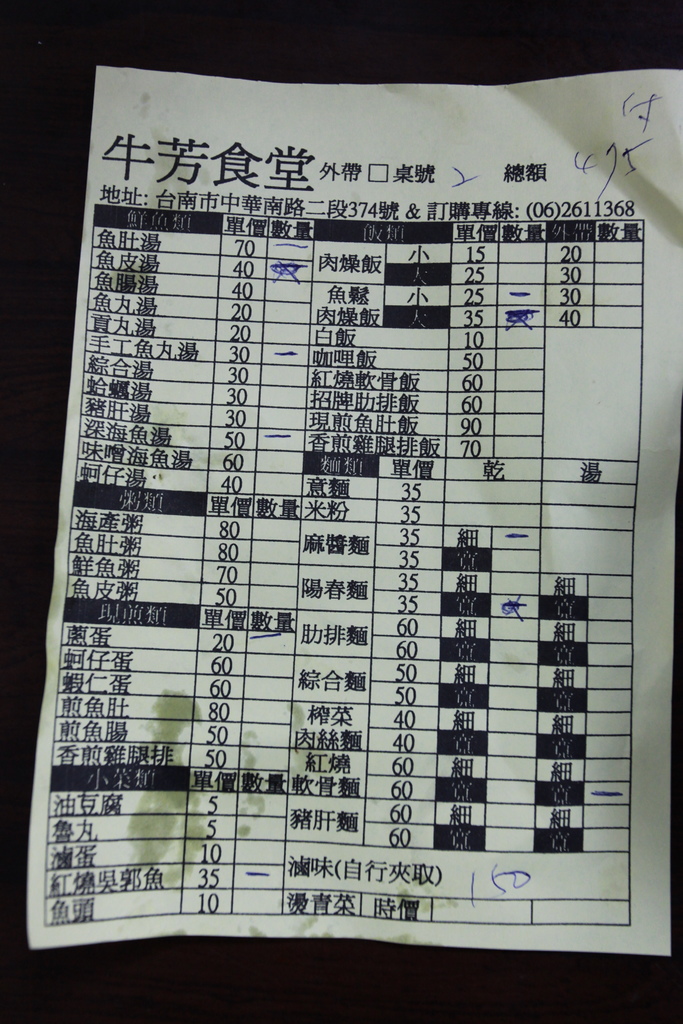 付
475
牛芳食堂 外帶 □ 桌號 2 總額
地址: 台南市中華南路二段374號 & 訂購專線: (06)2611368
鮮魚類 單價 數量
魚肚湯 70 一
魚皮湯 40
魚腸湯 40
魚丸湯 20
貢丸湯 20
手工魚丸湯 30 一
綜合湯 30
蛤蠣湯 30
豬肝湯 30
深海魚湯 50 一
味噌海魚湯 60
蚵仔湯 40
粥類 單價 數量
海產粥 80
魚肚粥 80
鮮魚粥 70
魚皮粥 50
現煎類 單價 數量
蔥蛋 20 一
蚵仔蛋 60
蝦仁蛋 60
煎魚肚 80
煎魚腸 50
香煎雞腿排 50
小菜類 單價 數量
油豆腐 5
魯丸 5
滷蛋 10
紅燒吳郭魚 35 一
魚頭 10
飯類 單價 數量 外帶 數量
肉燥飯 小 15 20
大 25 30
魚鬆 小 25 一 30
肉燥飯 大 35 40
白飯 10
咖哩飯 50
紅燒軟骨飯 60
招牌肋排飯 60
現煎魚肚飯 90
香煎雞腿排飯 70
麵類 單價 乾 湯
意麵 35
米粉 35
麻醬麵 35 細 一
35 寬
陽春麵 35 細 細
35 寬 寬
肋排麵 60 細 細
60 寬 寬
綜合麵 50 細 細
50 寬 寬
榨菜 40 細 細
肉絲麵 40 寬 寬
紅燒 60 細 細
軟骨麵 60 寬 寬 一
豬肝麵 60 細 細
60 寬 寬
滷味(自行夾取) 150
燙青菜 時價